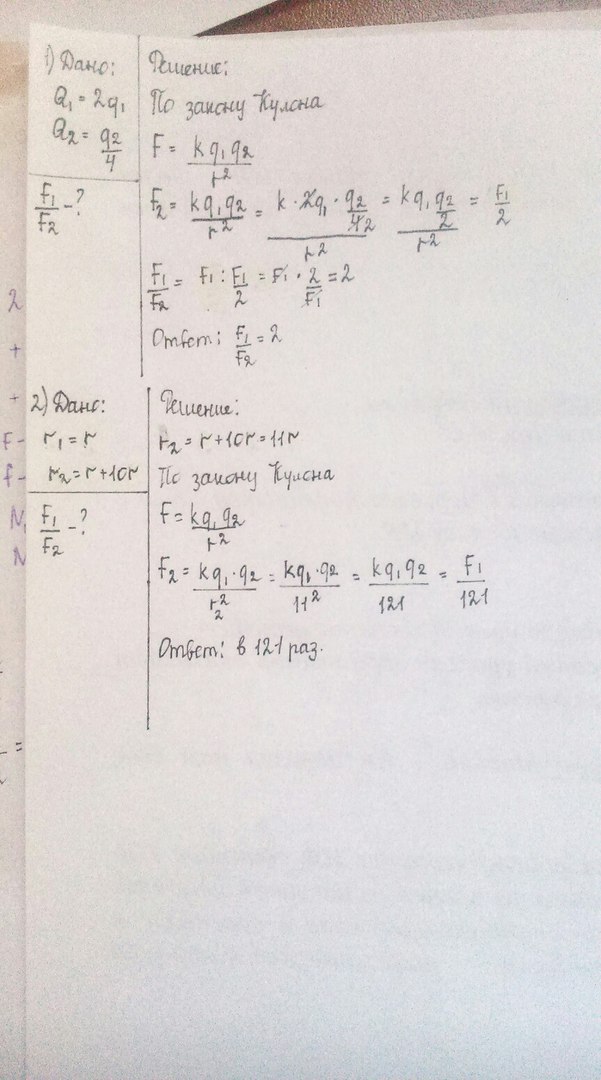 1) Дано:
Q₁ = 2q₁
Q₂ = q₂/4
F₁/F₂ - ?
Решение:
По закону Кулона
F = kq₁q₂/r²
F₂ = kq₁q₂/r² = k·2q₁·q₂/4 2/r² = kq₁q₂/2/r² = F₁/2
F₁/F₂ = F₁ : F₁/2 = F₁ · 2/F₁ = 2
Ответ: F₁/F₂ = 2
2) Дано:
r₁ = r
r₂ = r+10r
F₁/F₂ - ?
Решение:
r₂ = r+10r = 11r
По закону Кулона
F = kq₁q₂/r²
F₂ = kq₁·q₂/r₂² = kq₁·q₂/11² = kq₁q₂/121 = F₁/121
Ответ: в 121 раз.
2
+
+
F-
f-
N
=